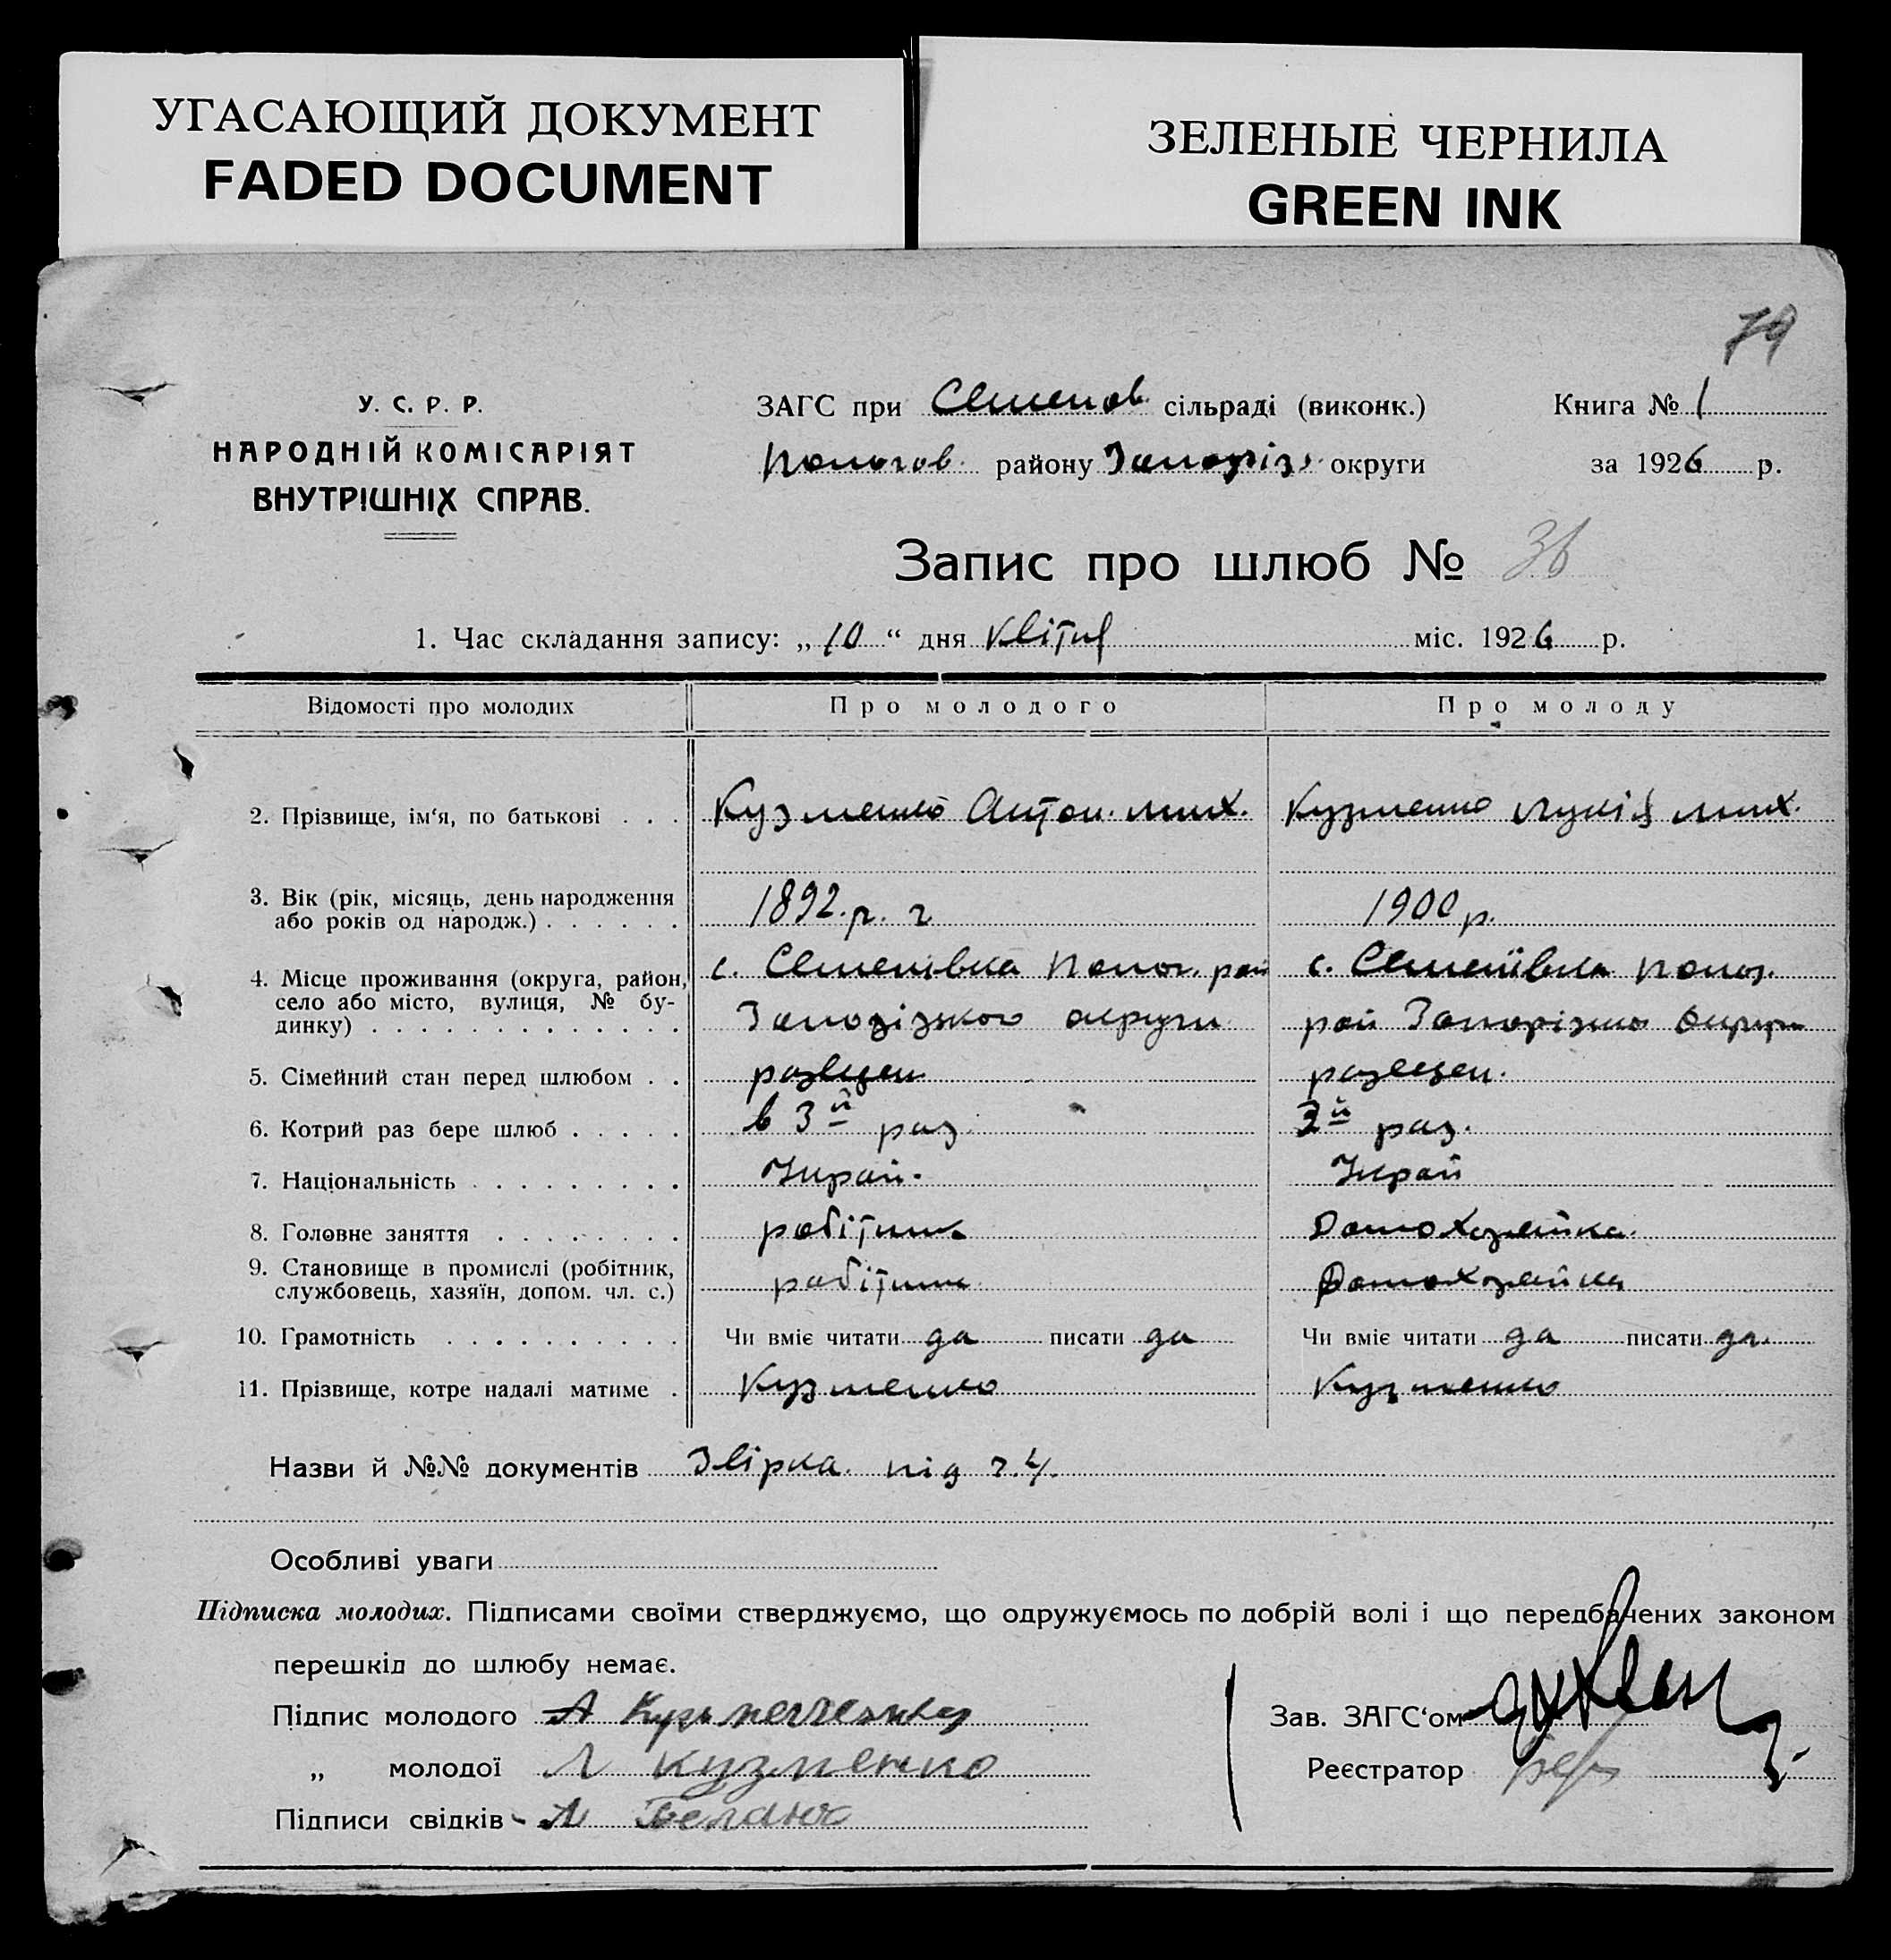 УГАСАЮЩИЙ ДОКУМЕНТ
FADED DOCUMENT
ЗЕЛЕНЫЕ ЧЕРНИЛА
GREEN INK
79
У. С. Р. Р.
НАРОДНІЙ КОМІСАРІЯТ
ВНУТРІШНІХ СПРАВ.
ЗАГС при Семенов. сільраді (виконк.)
Пологов. району Запоріз. округи
Книга № 1
за 1926 р.
Запис про шлюб № 36
1. Час складання запису: „10“ дня Квітня міс. 1926 р.
Відомості про молодих Про молодого Про молоду
2. Прізвище, ім'я, по батькові . . . Кузменко Антон. Мих. Кузменко Лукія Мих.
3. Вік (рік, місяць, день народження
або років од народж.) . . . . . . 1892. р. 1900 р.
4. Місце проживання (округа, район, с. Семенівка Полог. рай с. Семенівка Полог.
село або місто, вулиця, № бу-
динку) . . . . . . . . . . . . . . Запозізького округи рай Запорізько округи
5. Сімейний стан перед шлюбом . . разведен разведен.
6. Котрий раз бере шлюб . . . . . в 3й раз 2й раз.
7. Національність . . . . . . . . . Украй. Украй
8. Головне заняття . . . . . . . . робітник Домохозяйка.
9. Становище в промислі (робітник,
службовець, хазяїн, допом. чл. с.) робітник Домохозяйка
10. Грамотність . . . . . . . . . . Чи вміє читати да писати да Чи вміє читати да писати да
11. Прізвище, котре надалі матиме . Кузменко Кузменко
Назви й №№ документів Звірка. під ч. 4.
Особливі уваги
Підписка молодих. Підписами своїми стверджуємо, що одружуємось по добрій волі і що передбачених законом
перешкід до шлюбу немає.
Підпис молодого А
„ молодої Л Кузменко
Підписи свідків
Зав. ЗАГС'ом
Реєстратор